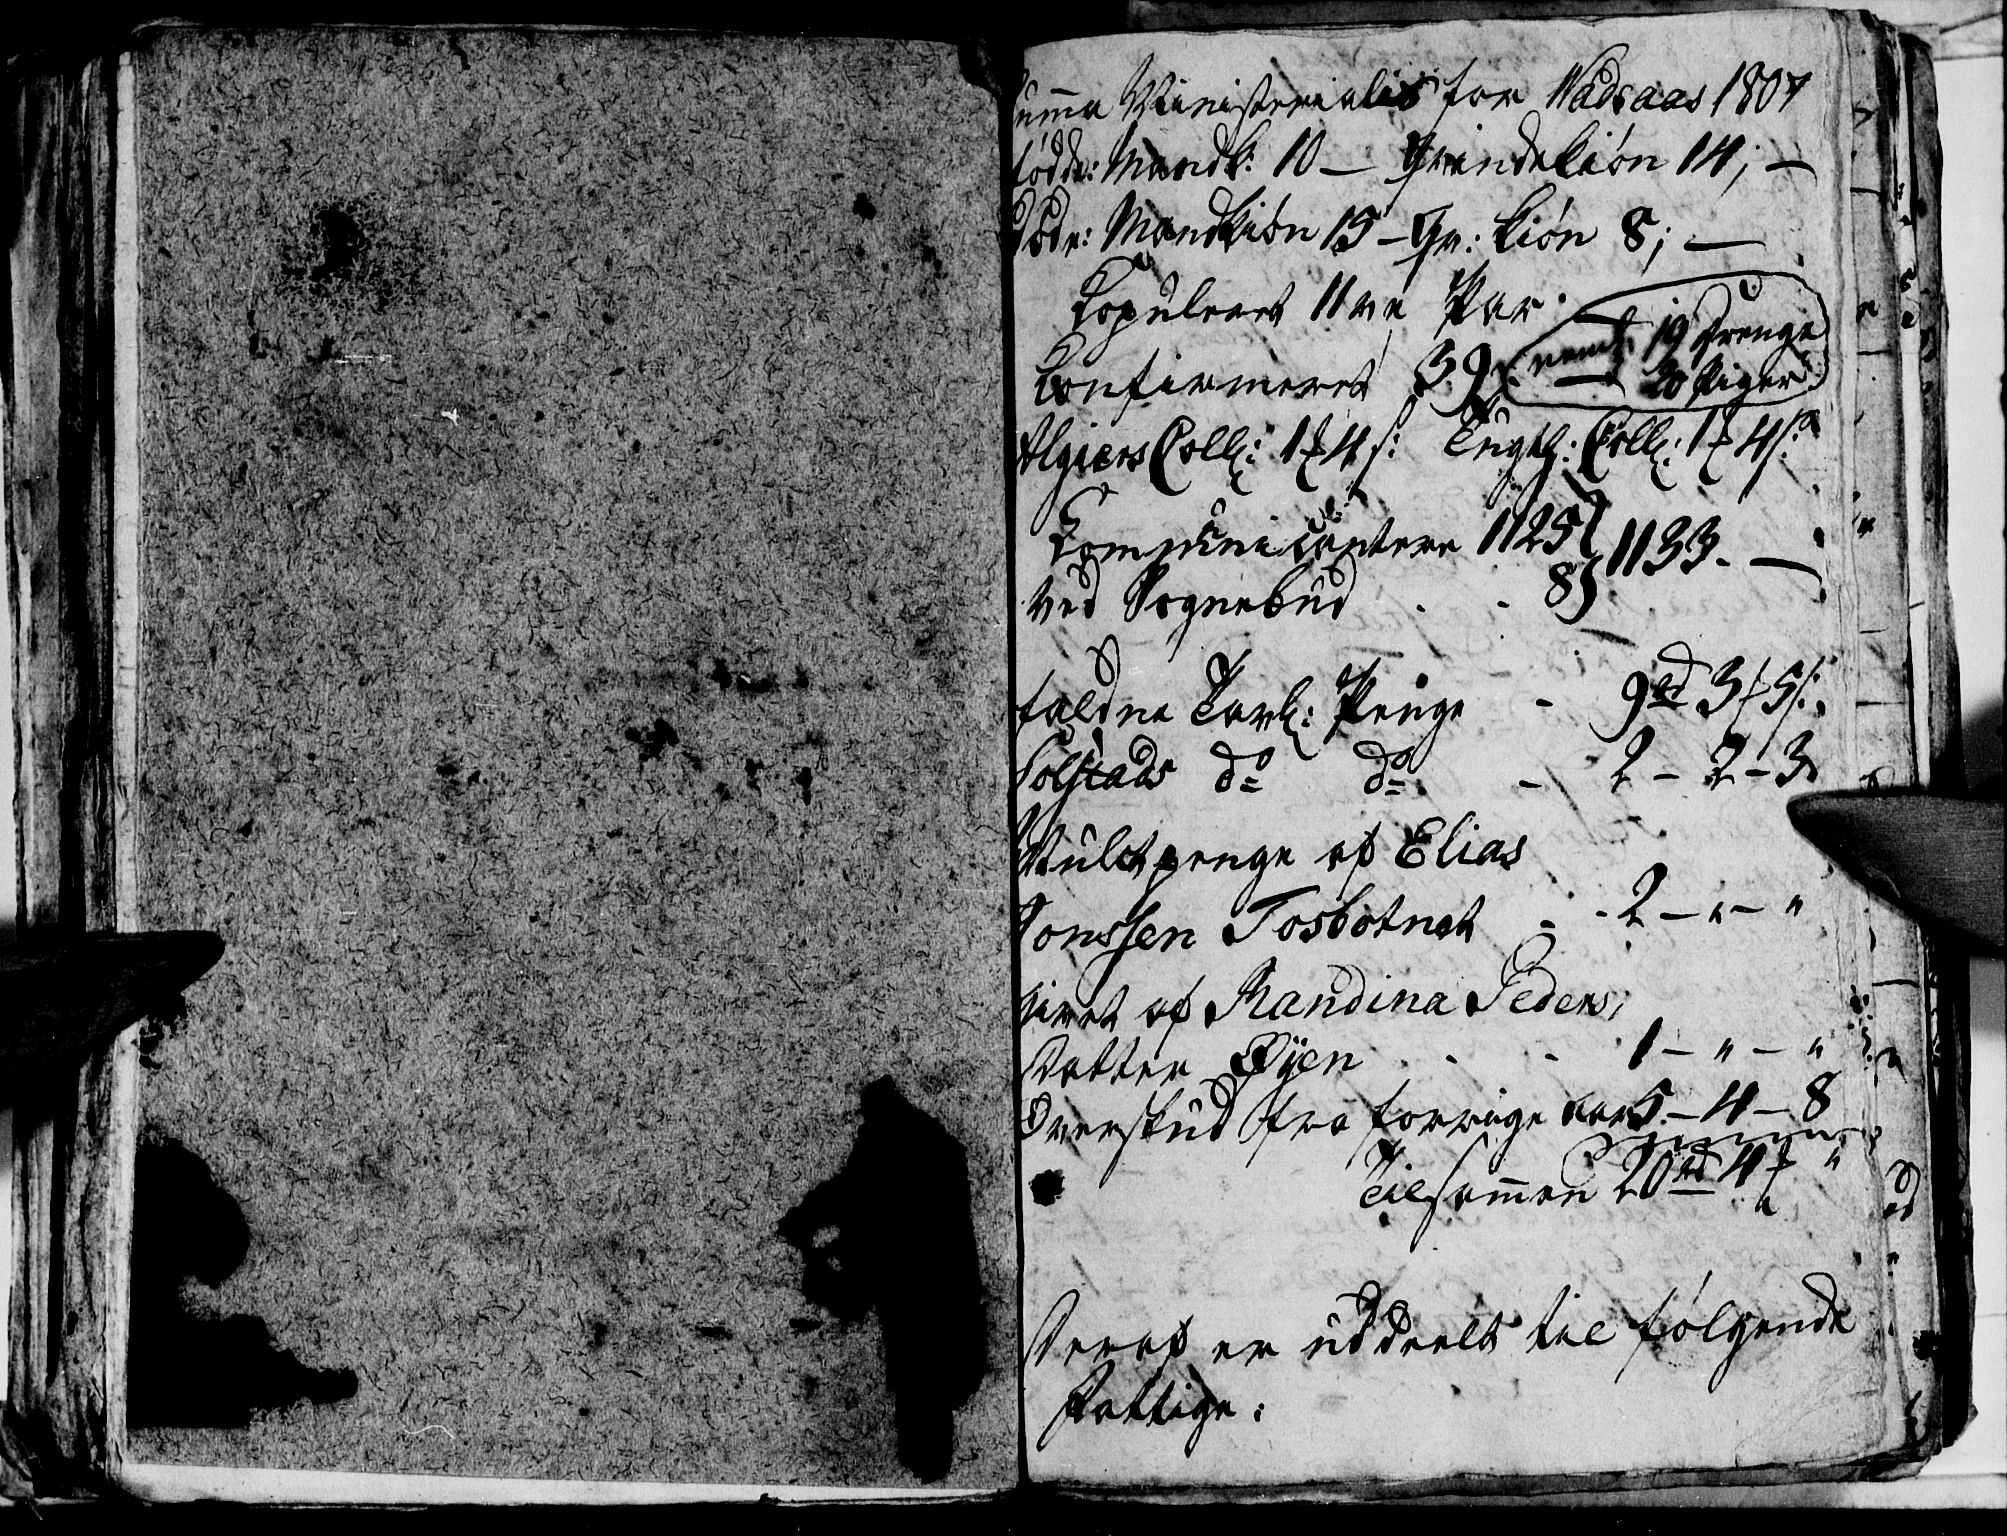 umma Ministerialis for Wadsaas 1807
fødde: Mandk: 10 — Qvindekión 14; —
Døde: Mandkión 15 – Qv: kión 8; —
Copuleret 11ve Par
Confirmeret 39. neml: 19 Drenge
20 Piger
Algiers Coll: 1 4 s: Engl: Coll: 1 4 s:
Communicantere 1125 } 1133. —
ved Sognebud . - 8
faldne Tavl: Penge - 9rd 3 5 s:
Solstads do do. - 2 – 2 – 3
Mulctpenge af Elias
Jonssen Tosbotnet - - 2 – " – "
givet af Randina Peders,
Datter Øyen - - 1 – " – "
Overskud fra forrige aar 5. – 4 – 8
Tilsam̄en 20rd 4 "
Deraf er uddeelt til følgende
Fattige: